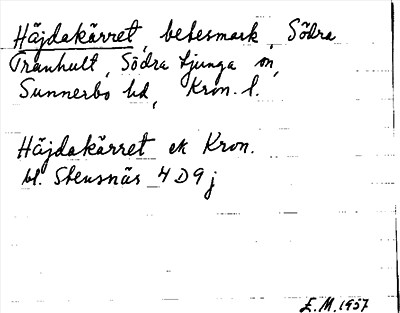 Häjdakärret, betesmark, Södra
Tranhult, Södra Ljunga sn,
Sunnerbo hd, Kron. l.
Häjdakärret ek Kron.
bl. Stensnäs 4D9j
E.M. 1957